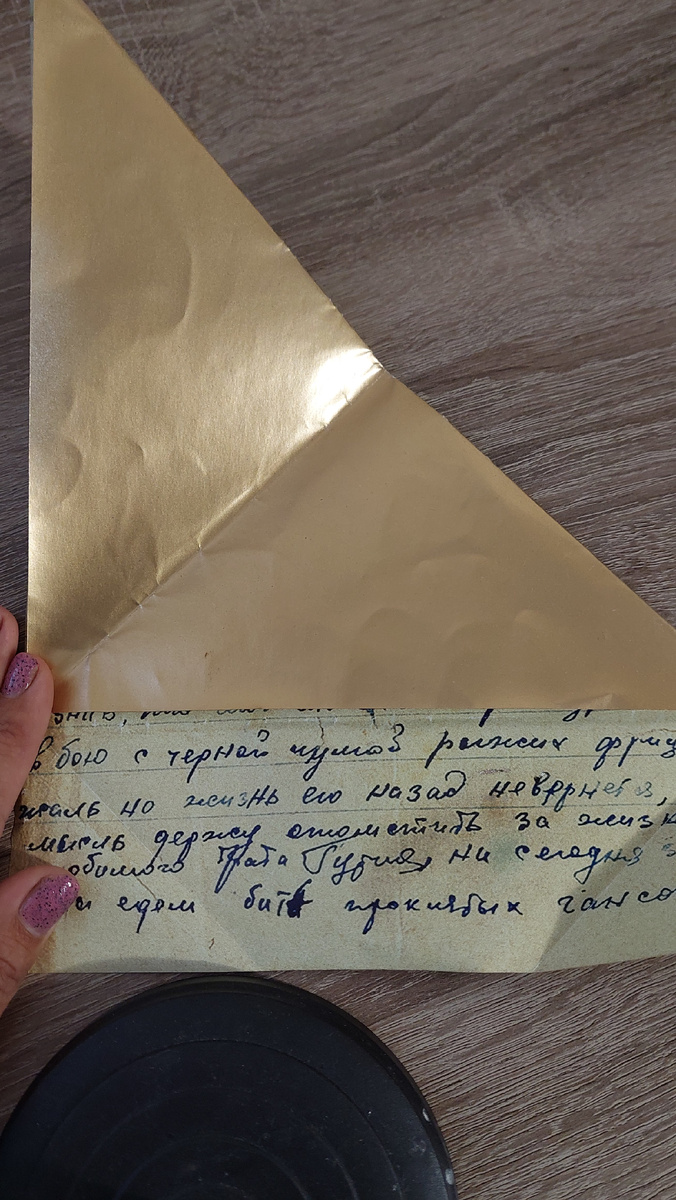 в бою с черной чумой рыжих фриц
жаль но жизнь его назад невернется,
мысль держу отомстить за жизн
юбимого брата на сегодня
едем бить проклятых гансо